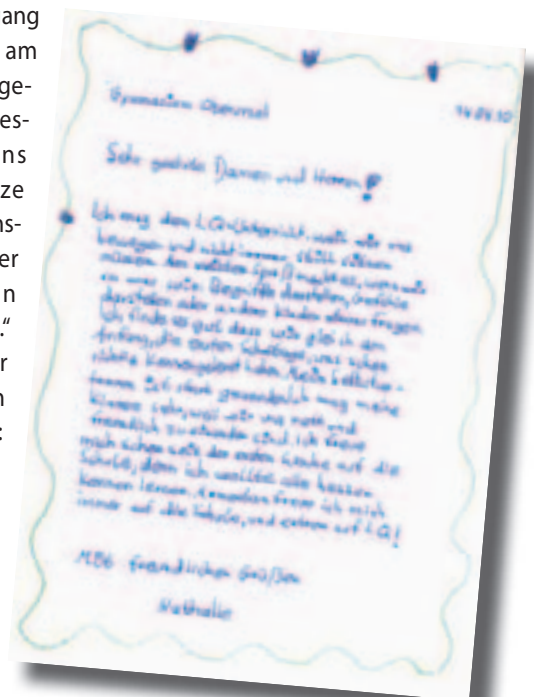 ang
am
ge-
es-
ns
ze
ns-
er
n
.“
r
n
:
Gymnasium Oberursel
Sehr geehrte Damen und Herren!
Ich mag den LQ-Unterricht, weil wir uns
bewegen und nicht immer still sitzen
müssen. Am meisten Spaß macht es, wenn wir
so was wie Begriffe darstellen, Gefühle
darstellen oder andere Kinder etwas fragen.
Ich finde es gut, dass wir gleich am
Anfang, die ersten Schultage, uns schon
richtig kennengelernt haben. Mein
ist stark geworden. Ich mag meine
Klasse sehr, weil wir uns nett und
freundlich zueinander sind. Ich freue
mich schon seit der ersten Woche auf die
Schule, denn ich wollte alle besser
kennen lernen. freue ich mich
immer auf die Schule, und extrem auf LQ!
Mit freundlichen Grüßen
Nathalie